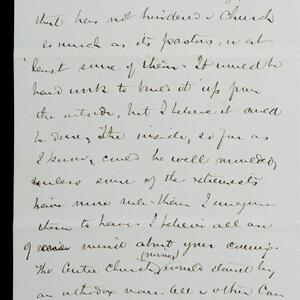 that has not hindered a Church
so much as its pastors, or at
least some of them. It would be
hard work to build it up from
the outside, but I believe it could
be done. The inside, so far as
I know, could be well managed,
unless some of the extremists
have more rule than I imagine
them to have. I believe all are
of mind about your coming.
The Centre Church (mines) would stand by
an orthodox man. All & other Con